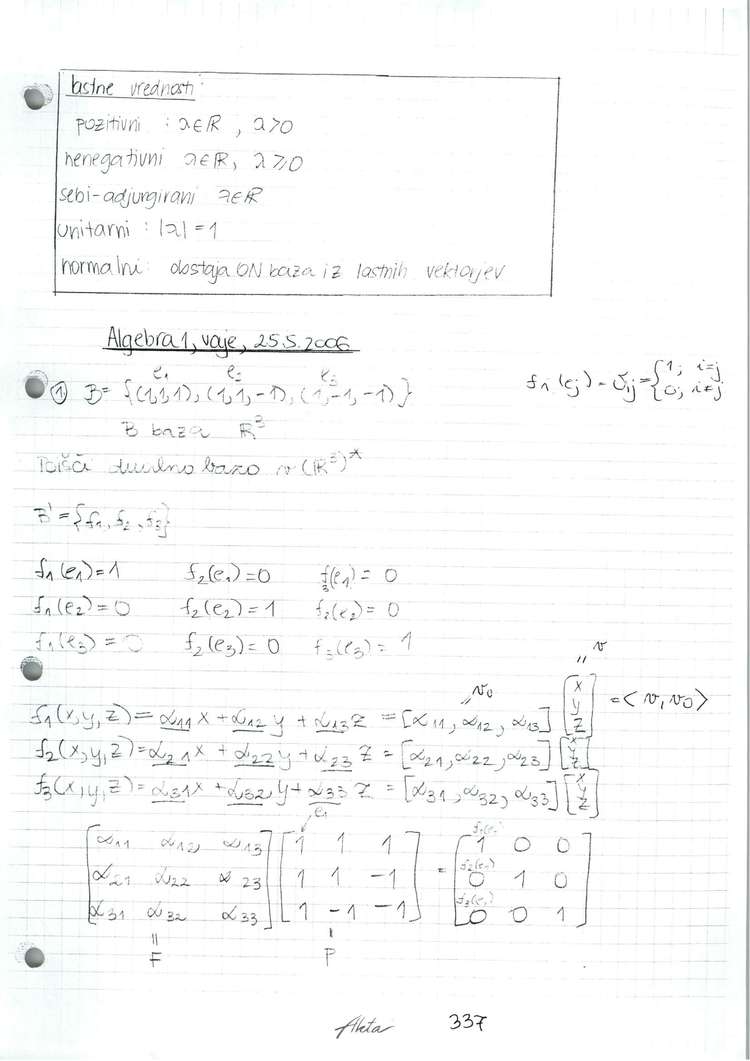 lastne vrednosti:
pozitivni : λ∈ℝ, λ>0
nenegativni λ∈ℝ, λ≥0
sebi-adjungirani λ∈ℝ
unitarni : |λ|=1
normalni: obstaja ON baza iz lastnih vektorjev
Algebra 1, vaje, 25.5.2006
e₁ e₂ e₃
① B= {(1,1,1), (1,1,-1), (1,-1,-1)}
f₁(eⱼ) = δᵢⱼ = {1, i=j
0, i≠j
B baza ℝ³
Poišči dualno bazo v (ℝ³)*
B' = {f₁, f₂, f₃}
f₁(e₁)=1 f₂(e₁)=0 f₃(e₁)= 0
f₁(e₂)=0 f₂(e₂)=1 f₃(e₂)= 0
f₁(e₃)=0 f₂(e₃)=0 f₃(e₃)= 1
v₀ v
f₁(x,y,z)= α₁₁x + α₁₂y + α₁₃z = [α₁₁, α₁₂, α₁₃] [x y z] = <v, v₀>
f₂(x,y,z)= α₂₁x + α₂₂y + α₂₃z = [α₂₁, α₂₂, α₂₃] [x y z]
f₃(x,y,z)= α₃₁x + α₃₂y + α₃₃z = [α₃₁, α₃₂, α₃₃] [x y z]
e₁ f₁(e₁)
[α₁₁ α₁₂ α₁₃] [1 1 1] [1 0 0]
f₂(e₁)
[α₂₁ α₂₂ α₂₃] [1 1 -1] = [0 1 0]
f₃(e₁)
[α₃₁ α₃₂ α₃₃] [1 -1 -1] [0 0 1]
= F = P
337